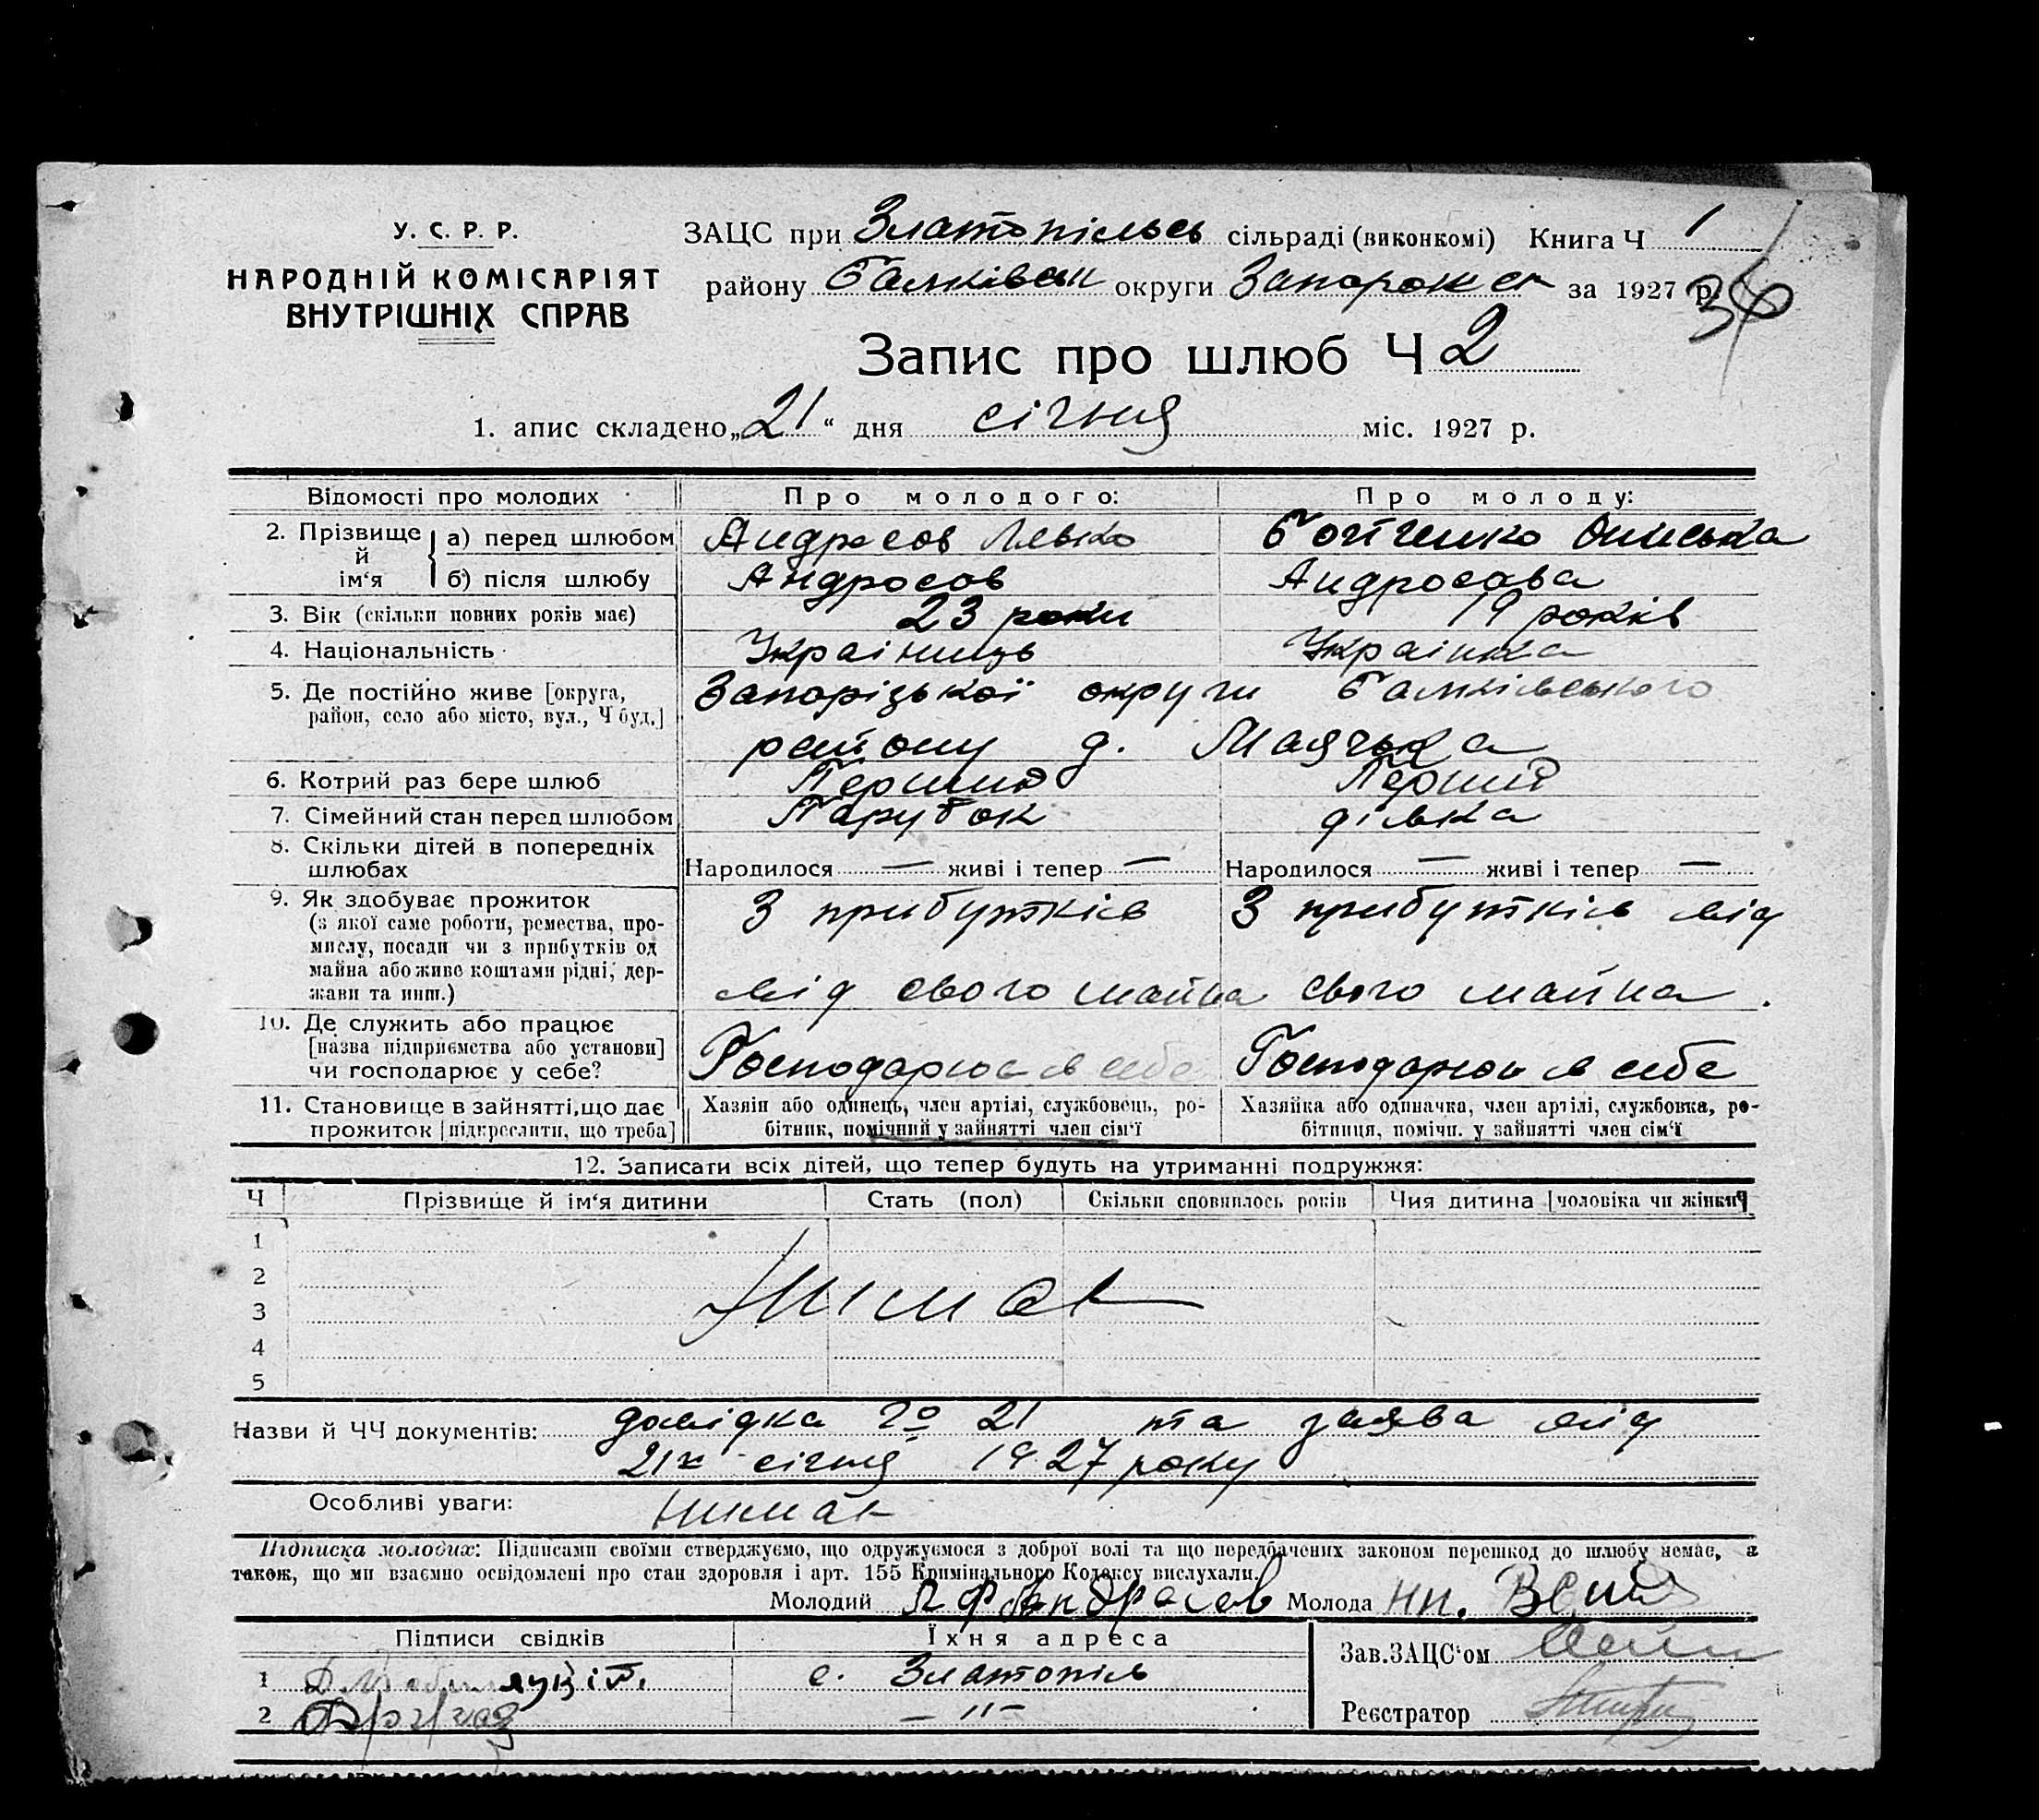 У. С. Р. Р.
НАРОДНІЙ КОМІСАРІЯТ
ВНУТРІШНІХ СПРАВ
ЗАЦС при Златопільсь сільраді (виконкомі) Книга Ч 1
району Балківськ округи Запорожск за 1927 р.
34
Запис про шлюб Ч 2
1. апис складено „21“ дня січня міс. 1927 р.
Відомості про молодих Про молодого: Про молоду:
2. Прізвище й ім‘я а) перед шлюбом Андросов Левко Бойченко
б) після шлюбу Андросов Андросова
3. Вік (скільки повних років має) 23 роки 19 років
4. Національність Украінець Украінка
5. Де постійно живе [округа, район, село або місто, вул., Ч буд.] Запорізькоі округи Балківського
району д. Маячька
6. Котрий раз бере шлюб Перший Перший
7. Сімейний стан перед шлюбом Парубок дівка
8. Скільки дітей в попередніх шлюбах Народилося — живі і тепер — Народилося — живі і тепер —
9. Як здобуває прожиток
(з якої саме роботи, ремества, про-
мислу, посади чи з прибутків од
майна або живе коштами рідні, дер-
жави та инш.)
З прибутків
від свого майна
З прибутків від
свого майна.
10. Де служить або працює
[назва підприємства або установи]
чи господарює у себе?
Господарює в себе Господарює в себе
11. Становище в зайнятті, що дає
прожиток [підкреслити, що треба]
Хазяін або одинець, член артілі, службовець, ро-
бітник, помічний у зайнятті член сім‘ї
Хазяйка або одиначка, член артілі, службовка, ро-
бітниця, помічн. у зайнятті член сім‘ї
12. Записати всіх дітей, що тепер будуть на утриманні подружжя:
Ч Прізвище й ім‘я дитини Стать (пол) Скільки сповнилось років Чия дитина [чоловіка чи жінки]
1
2
3
4
5
Нимає
Назви й ЧЧ документів: довідка № 21 та заява від
21го січня 1927 року
Особливі уваги: нимає
Підписка молодих: Підписами своїми стверджуємо, що одружуємося з доброї волі та що передбачених законом перешкод до шлюбу немає, а
також, що ми взаємно освідомлені про стан здоровля і арт. 155 Кримінального Кодексу вислухали.
Молодий Л Ф Андросов Молода
Підписи свідків Їхня адреса
1 с. Златопіль
2 — „ —
Зав. ЗАЦС‘ом
Реєстратор